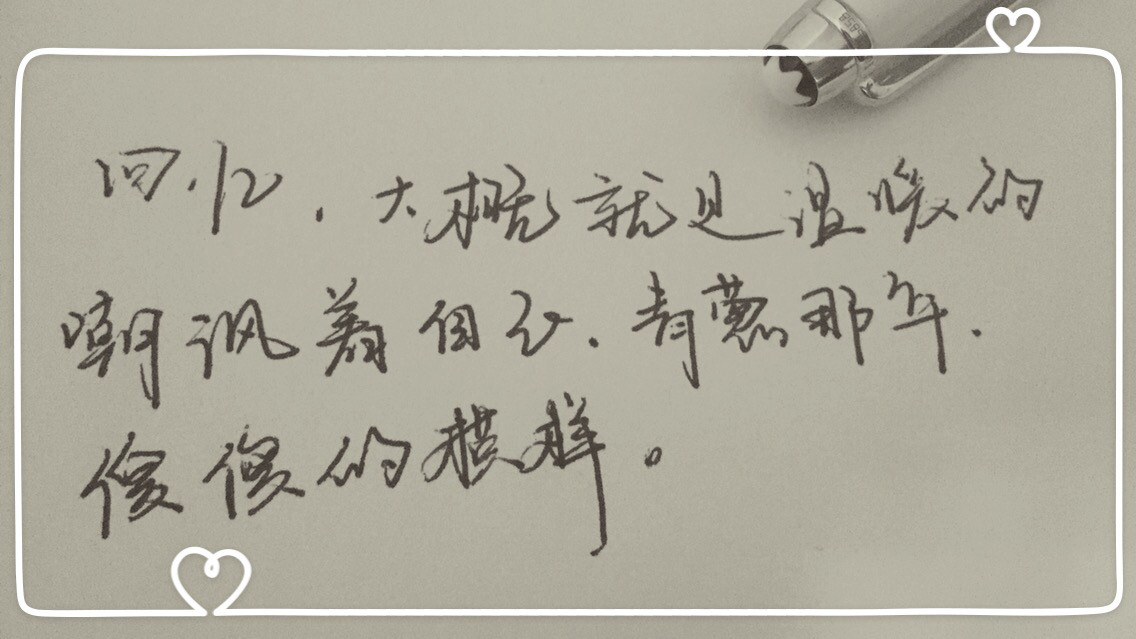 回忆，大概就是温暖的
嘲讽着自己，青葱那年，
傻傻的模样。